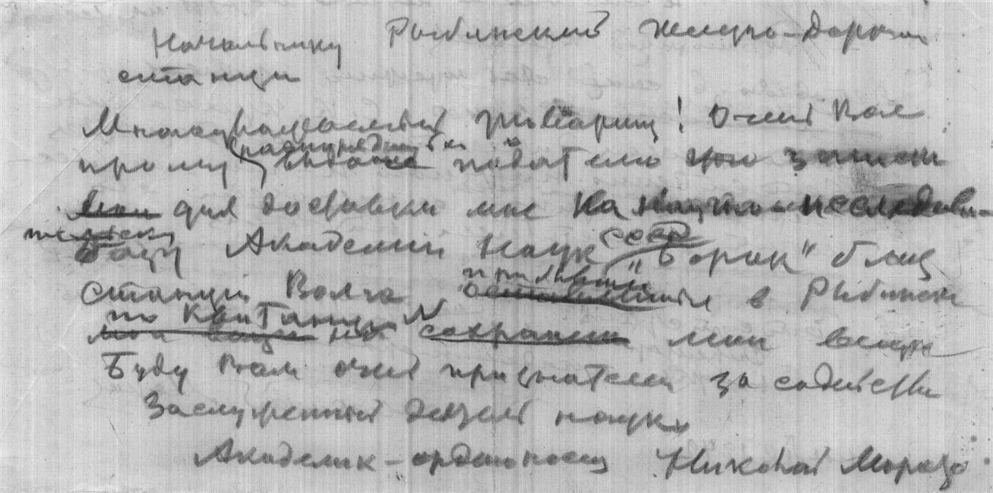 Начальнику Рыбинской железно-дорожн
станции
Многоуважаемый товарищ! Очень Вас
прошу распорядиться выдать подателю
для доставки мне на научно-исследова-
тельскую базу Академии Наук СССР "Борок" близ
станции Волга прибывшие в Рыбинск
по квитанции № мои вещи
Буду Вам очень признателен за содействие
Заслуженный деятель науки
Академик-орденоносец Николай Морозов